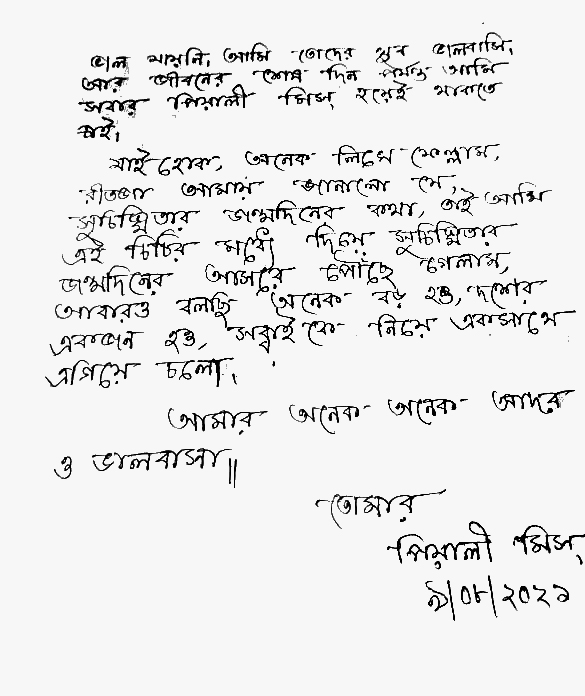 ভাল যায়নি, আমি তোদের খুব ভালবাসি,
আর জীবনের শেষ দিন পর্যন্ত আমি
সবার পিয়ালী মিস্ হয়েই থাকতে
চাই,
যাই হোক, অনেক লিখে ফেল্লাম,
আমায় জানালো যে,
সুচিস্মিতার জন্মদিনের কথা, তাই আমি
এই চিঠির মধ্যে দিয়ে সুচিস্মিতার
জন্মদিনের আসরে পৌঁছে গেলাম,
আবারও বলছি অনেক বড় হও, দশের
একজন হও, সব্বাইকে নিয়ে একসাথে
এগিয়ে চলো,
আমার অনেক অনেক আদর
ও ভালবাসা॥
তোমার
পিয়ালী মিস্
৯/০৮/২০২১